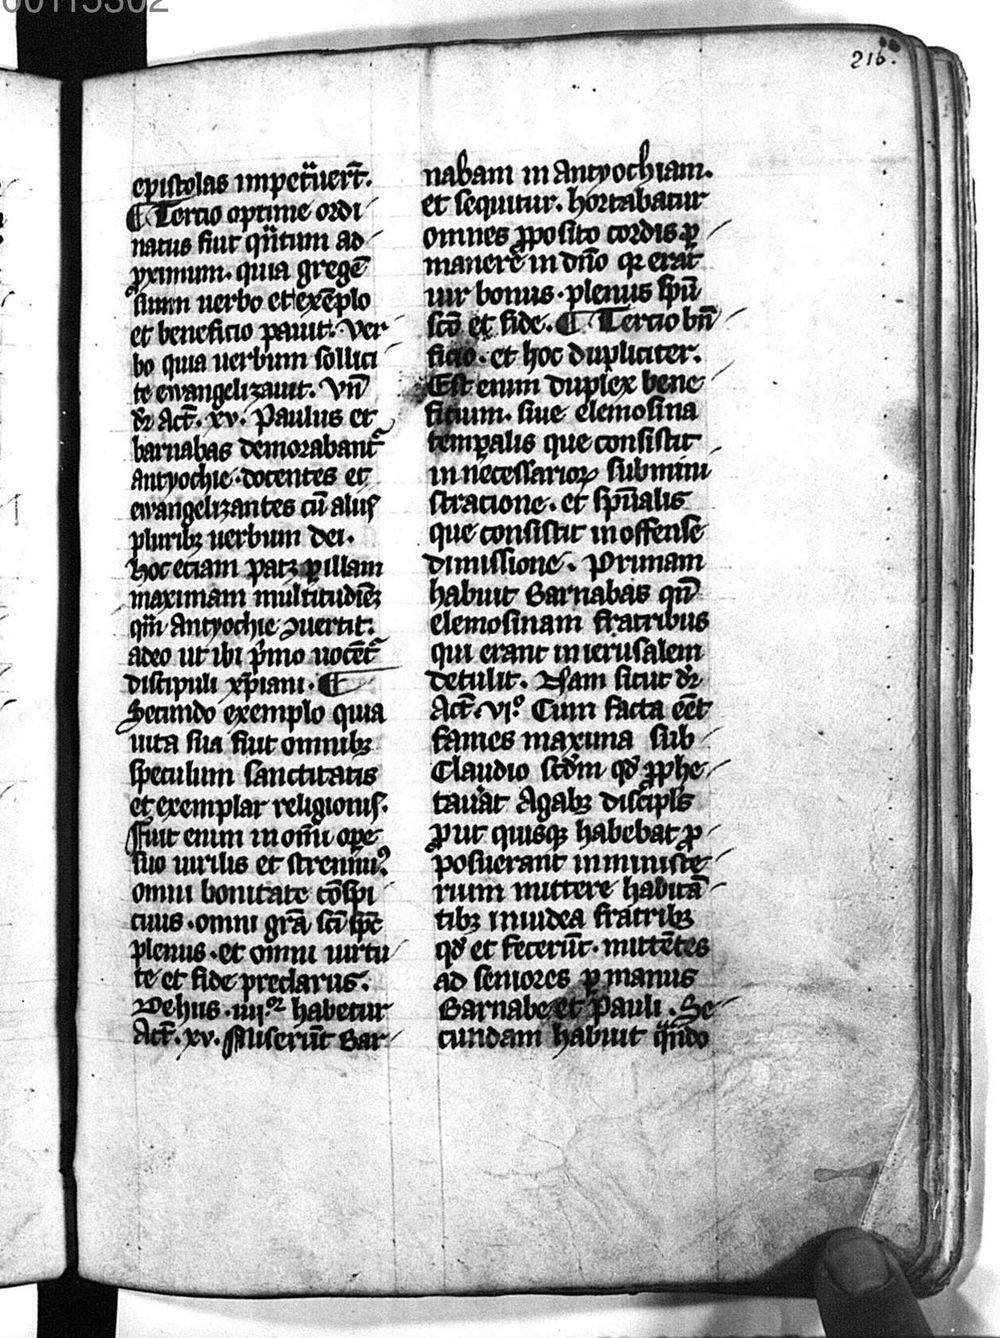 00115302
216.
epistolas impet̄uert̄.
¶ Tercio optime ordi
natus fuit qn̄tum ad
ꝓximum. quia gregē
suum uerbo et exēplo
et beneficio pauit. Ver
bo quia uerbum sollici
te ewangelizauit. Vn̄
dr̄ act̄. xv. Paulus et
barnabas demorabant᷑
antyochie. docentes et
ewangelizantes cū aliis
pluribꝫ uerbum dei.
hoc etiam patꝫ ꝑ illam
maximam multitudinēꝫ
qm̄ Antyochie ꝯuertit.
adeo ut ibi pͥmo uocēt᷑
discipuli xp̄iani. ¶
Secundo exemplo quia
uita sua fuit omnibꝫ
speculum sanctitatis
et exemplar religionis.
Fuit enim in om̄i ope
suo uirilis et strenuuꝰ
omni bonitate cōspi
cuus. omni grā sc̄i sp̄c
plenus. et omni uirtu
te et fide preclarus.
De hiis. iiiiᵒʳ habetur
Act̄. xv. Miserūt Bar
nabam in Antyochiam.
et sequitur. hortabatur
omnes ꝓposito cordis ꝑ
manere in dn̄o qꝛ erat
uir bonus. plenus sp̄u
sc̄o et fide. ¶ Tercio bn̄
ficio. et hoc dupliciter.
Est enim duplex bene
ficium. siue elemosina
temꝑalis que consistit
in necessarioꝝ submini
stracione. et sp̄ualis
que consistit in offense
dimissione. Primam
habuit Barnabas qn̄
elemosinam fratribus
qui erant in ierusalem
detulit. Nam sicut dr̄
Act̄. vi°. Cum facta eēt
fames maxima sub
Claudio scd̄m qd̄ ꝓphe
tauāt Agabꝫ discipl̄s
ꝓut quisqꝫ habebat ꝓ
posuerant in ministe
rium mittere habitā
tibꝫ in iudea fratribꝫ
qd̄ et fecerūt. mittētes
ad seniores ꝑ manus
Barnabe et Pauli. Se
cundam habuit qn̄do